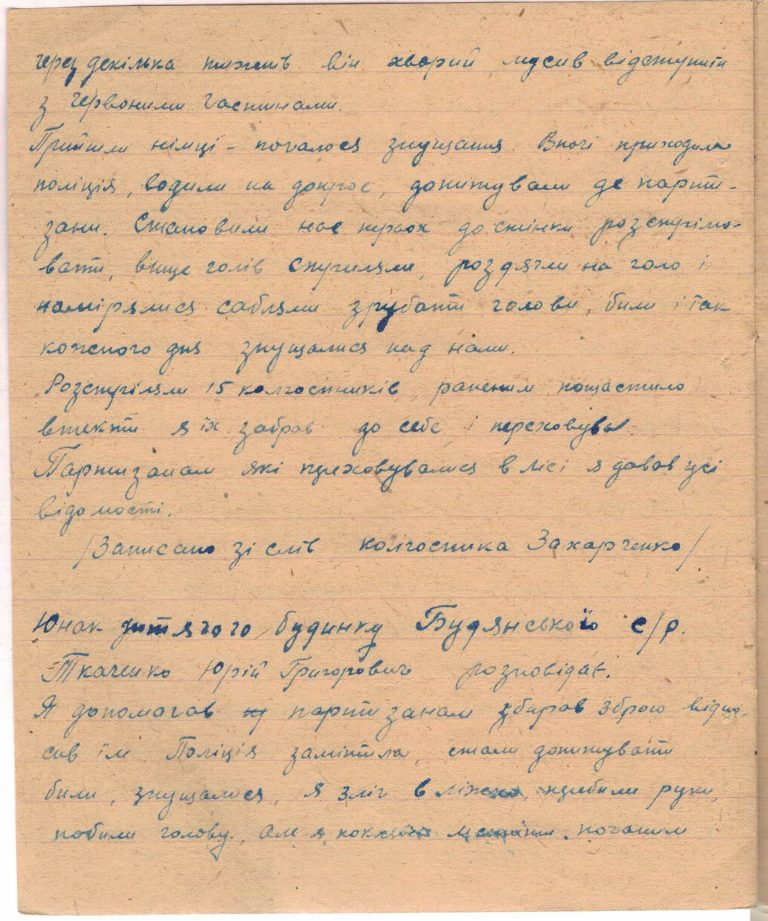 через декілька тижнів він хворий мусив відступити
з червоними частинами.
Прийшли німці - почалося знущання. Вночі приходила
поліція, водили на допрос, допитували де парти-
зани. Становили нас трьох до стінки розстрілю-
вати, вище голів стріляли, роздягли на голо і
намірялися саблями зрубати голови, били і так
кожного дня знущалися над нами.
Розстріляли 15 колгоспників, раненим пощастило
втекти я їх забрав до себе і переховував
Партизанам які преховувалися в лісі я давав усі
відомості.
/Записано зі слів колгоспника Захарченко/
Юнак дитячого будинку Будянського с/р.
Ткаченко Юрій Григорович розповідає.
Я допомогав партизанам збирав зброю відно-
сив їм. Поліція замітила, стали допитувати
били, знущалися, я зліг в ліжко, руки,
побили голову, але я